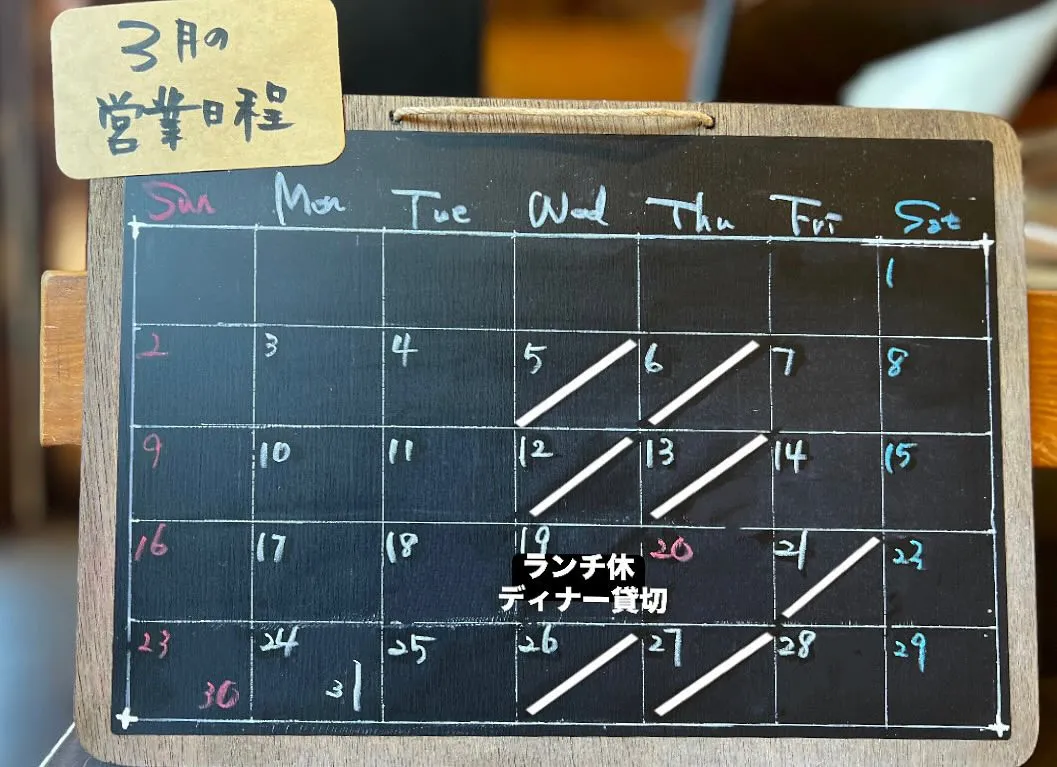 3月の
営業日程
Sun Mon Tue Wed Thu Fri Sat
1
2 3 4 5 6 7 8
9 10 11 12 13 14 15
16 17 18 19 20 21 22
ランチ休
ディナー貸切
23 24 25 26 27 28 29
30 31